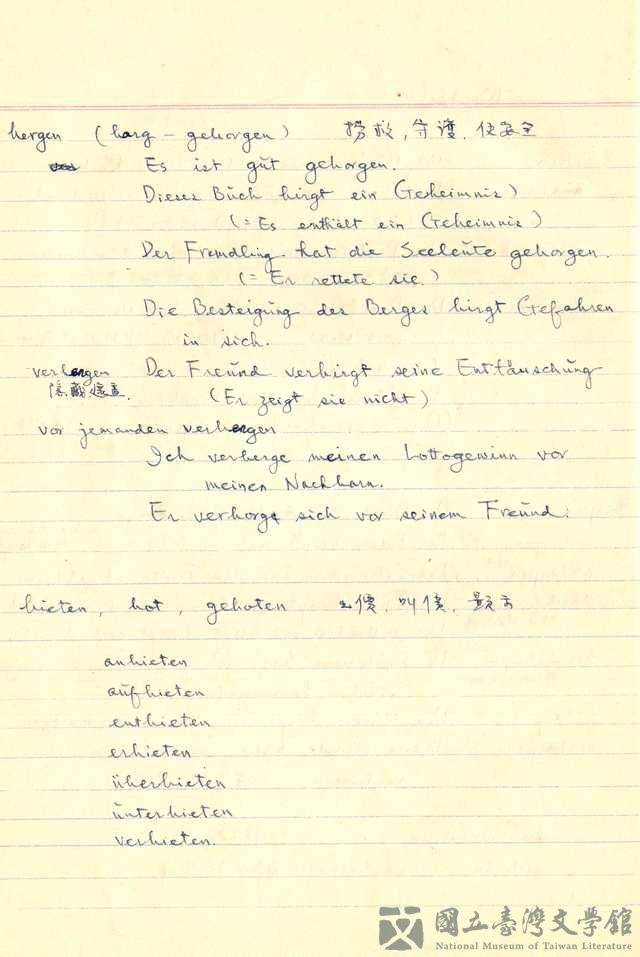 bergen (barg – geborgen) 撈救, 守護. 使安全
Es ist gut geborgen.
Dieses Buch birgt ein Geheimnis)
(= Es enthält ein Geheimnis)
Der Fremdling hat die Seeleute geborgen.
(= Er rettete sie.)
Die Besteigung des Berges birgt Gefahren
in sich.
verbergen Der Freund verbirgt seine Entfäuschung
隱藏
(Er zeigt sie nicht)
vor jemanden verbergen
Ich verberge meinen Lottogewinn vor
meinen Nachbarn.
Er verborgt sich vor seinem Freund.
bieten, bot, geboten 出價, 叫價, 顯示
anbieten
aufbieten
entbieten
erbieten
überbieten
unterbieten
verbieten.
國立臺灣文學館
National Museum of Taiwan Literature